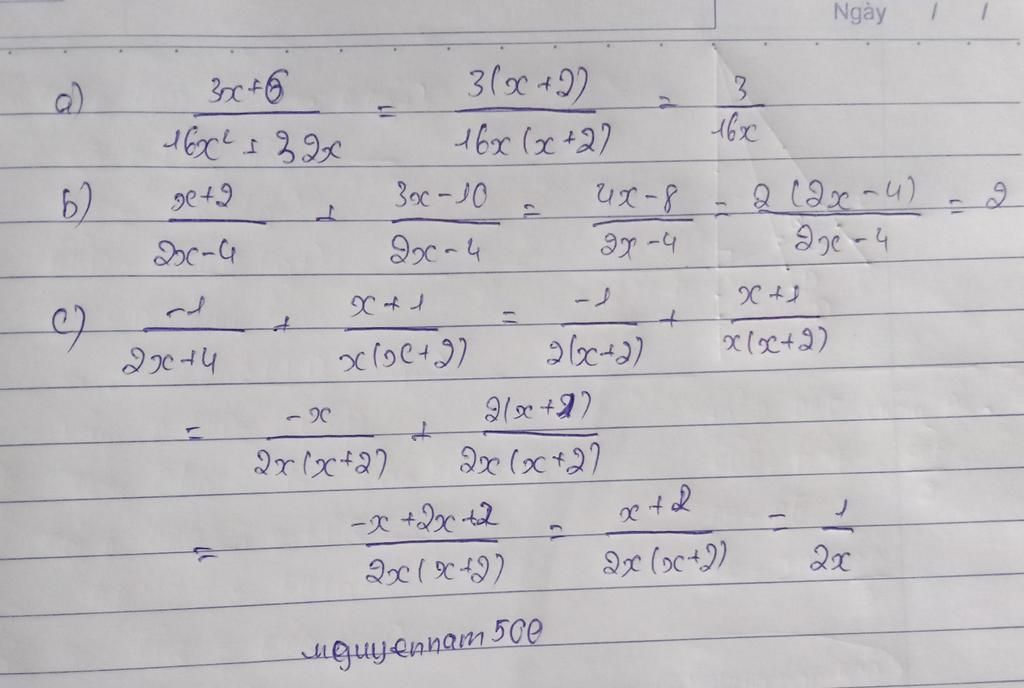 Ngày / /
a) (3x+6)/(16x² + 32x) = 3(x+2)/(16x(x+2)) = 3/(16x)
b) (x+2)/(2x-4) + (3x-10)/(2x-4) = (4x-8)/(2x-4) = 2(2x-4)/(2x-4) = 2
c) -1/(2x+4) + (x+1)/(x(x+2)) = -1/(2(x+2)) + (x+1)/(x(x+2))
= -x/(2x(x+2)) + 2(x+1)/(2x(x+2))
= (-x+2x+2)/(2x(x+2)) = (x+2)/(2x(x+2)) = 1/(2x)